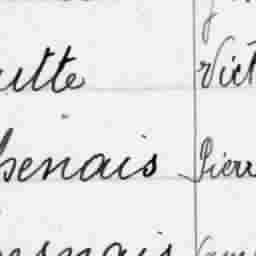 utte Vict
henais Pierr
esnais